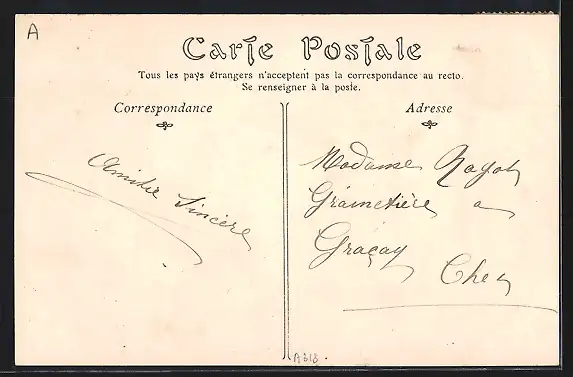 A
Carte Postale
Tous les pays étrangers n'acceptent pas la correspondance au recto.
Se renseigner à la poste.
Correspondance
Adresse
Amitié Sincère
Madame
a
Graçay
Cher